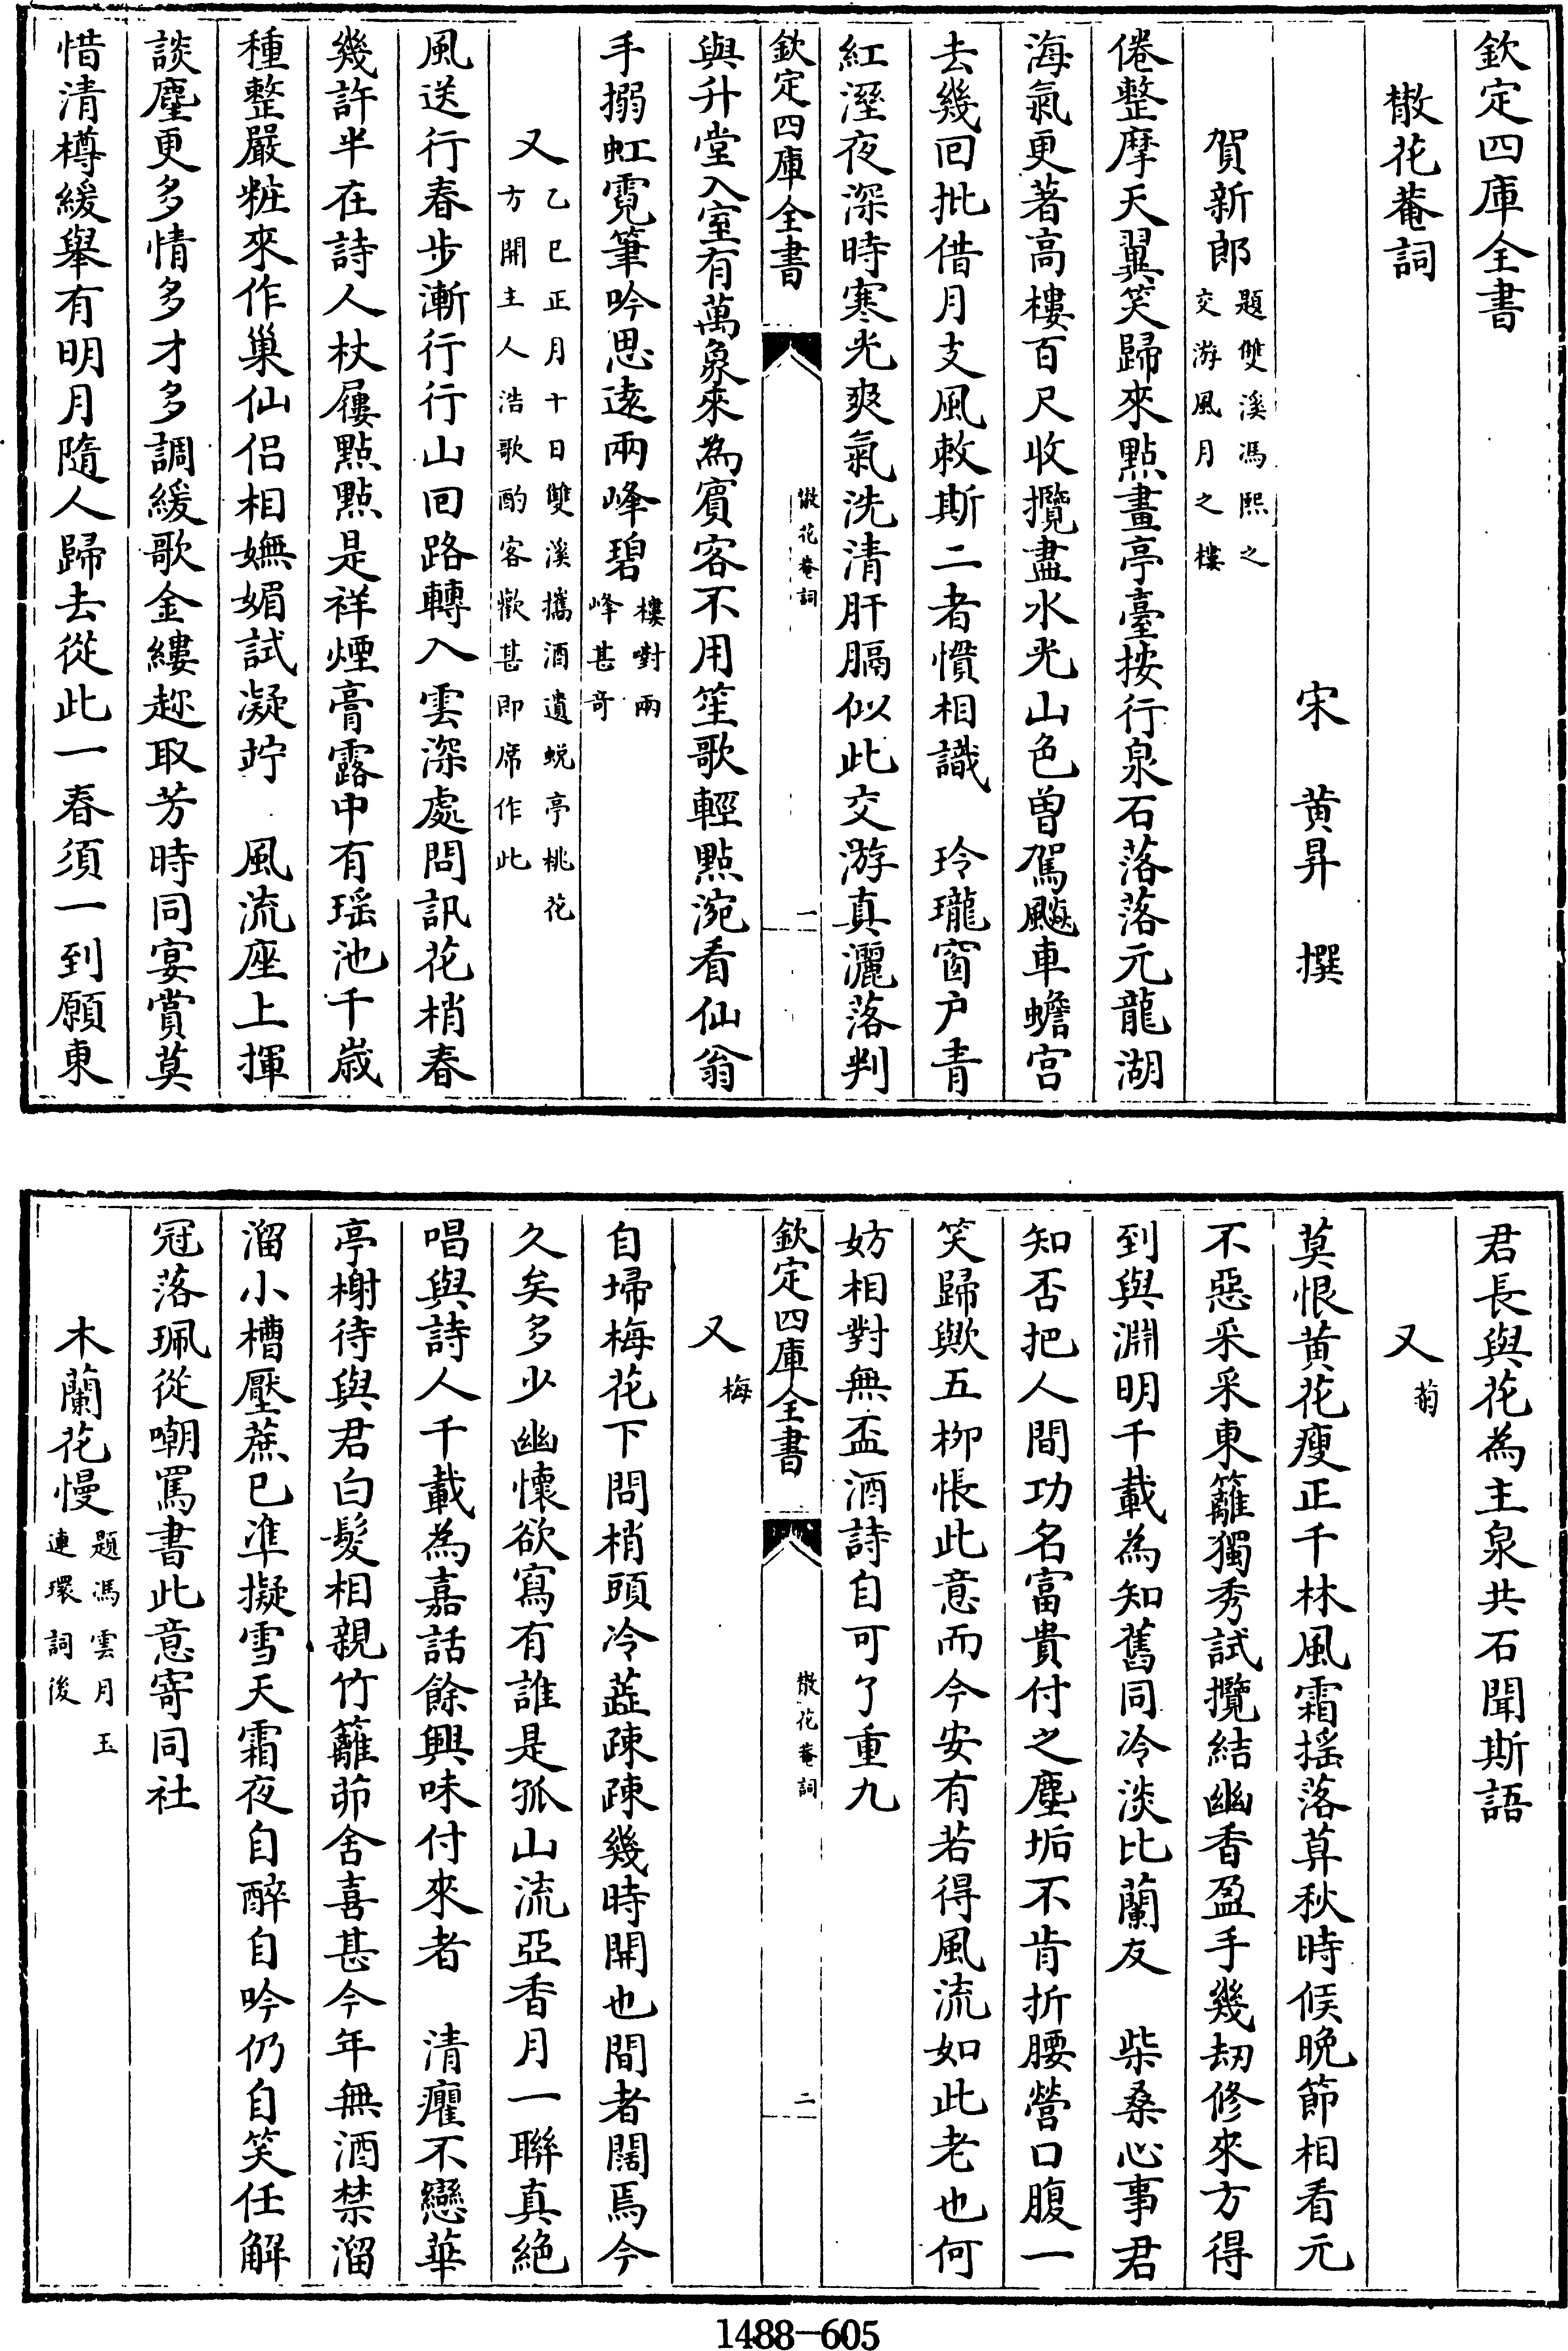 欽定四庫全書
散花菴詞
宋 黄昇 撰
賀新郎題雙溪馮熙之
交游風月之樓
倦整摩天翼笑歸來點畫亭臺按行泉石落落元龍湖
海氣更著高樓百尺收攬盡水光山色曾駕飈車蟾宮
去幾回批借月支風敕斯二者慣相識 玲瓏窗户青
紅溼夜深時寒光爽氣洗清肝膈似此交游真灑落判
欽定四庫全書
散花菴詞
一
與升堂入室有萬象來為賓客不用笙歌輕點涴看仙翁
手搦虹霓筆吟思遠兩峰碧樓對兩
峰甚奇
又乙巳正月十日雙溪攜酒遺蛻亭桃花
方開主人浩歌酌客歡甚即席作此
風送行春步漸行行山回路轉入雲深處問訊花梢春
幾許半在詩人杖屨點點是祥煙膏露中有瑶池千歲
種整嚴粧來作巢仙侣相嫵媚試凝竚 風流座上揮
談麈更多情多才多調緩歌金縷趂取芳時同宴賞莫
惜清樽緩舉有明月隨人歸去從此一春須一到願東
君長與花為主泉共石聞斯語
又菊
莫恨黄花瘦正千林風霜揺落算秋時候晚節相看元
不惡采采東籬獨秀試攬結幽香盈手幾刧修來方得
到與淵明千載為知舊同冷淡比蘭友 柴桑心事君
知否把人間功名富貴付之塵垢不肯折腰營口腹一
笑歸歟五栁悵此意而今安有若得風流如此老也何
妨相對無盃酒詩自可了重九
欽定四庫全書
散花菴詞
二
又梅
自埽梅花下問梢頭冷蕋踈踈幾時開也間者闊焉今
久矣多少幽懷欲寫有誰是孤山流亞香月一聯真絶
唱與詩人千載為嘉話餘興味付來者 清癯不戀華
亭榭待與君白髮相親竹籬茆舍喜甚今年無酒禁溜
溜小槽壓蔗已凖擬雪天霜夜自醉自吟仍自笑任解
冠落珮從嘲罵書此意寄同社
木蘭花慢題馮雲月玉
連環詞後
1488—605